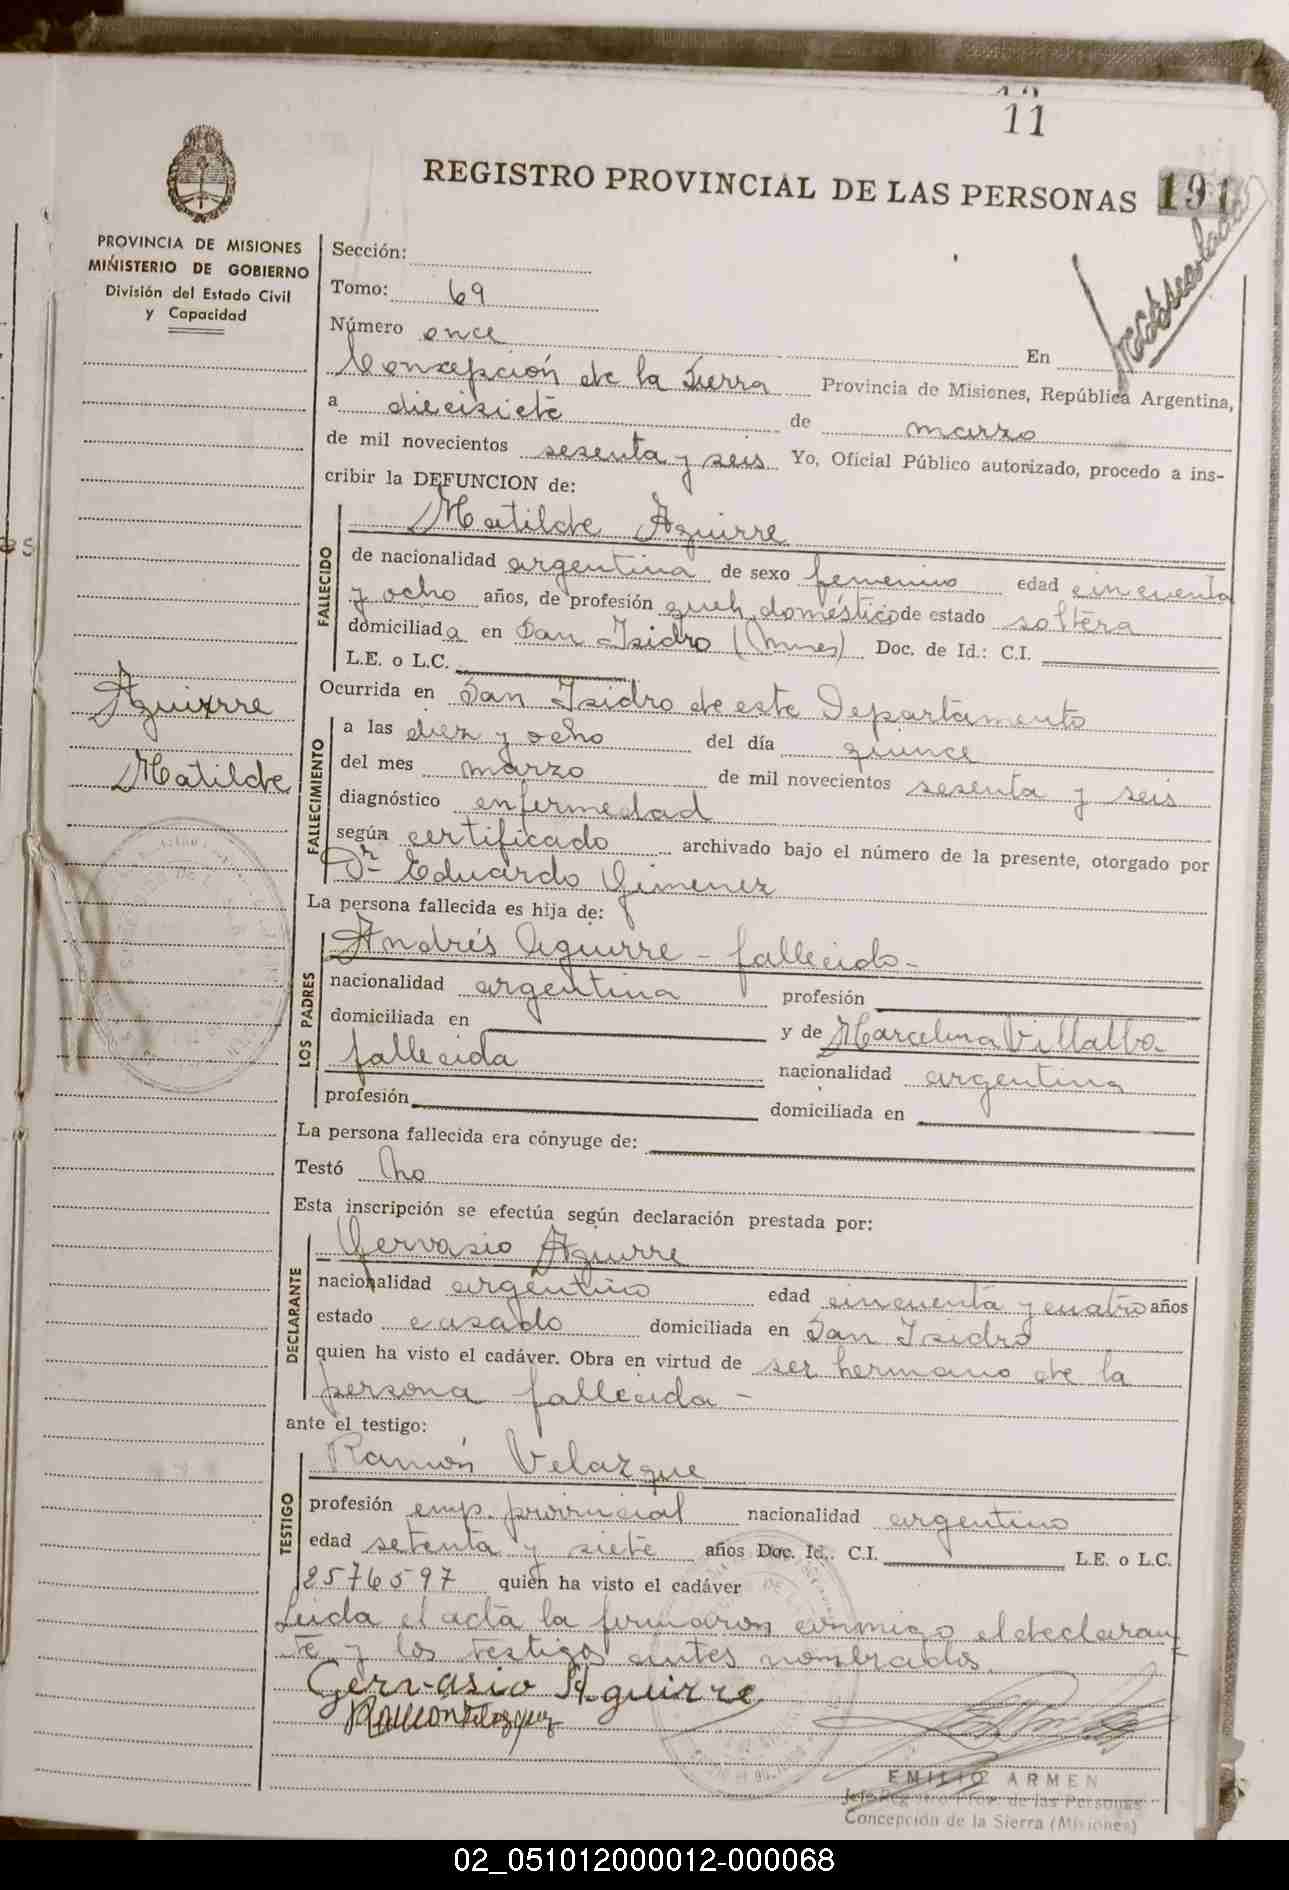 11
REGISTRO PROVINCIAL DE LAS PERSONAS 191
PROVINCIA DE MISIONES
MINISTERIO DE GOBIERNO
División del Estado Civil
y Capacidad
Aguirre
Matilde
Sección:
Tomo: 69
Número once En
Concepción de la Sierra Provincia de Misiones, República Argentina,
a diecisiete de marzo
de mil novecientos sesenta y seis Yo, Oficial Público autorizado, procedo a ins-
cribir la DEFUNCION de:
FALLECIDO
Matilde Aguirre
de nacionalidad argentina de sexo femenino edad cincuenta
y ocho años, de profesión queh. doméstico de estado soltera
domiciliada en San Isidro (Mnes) Doc. de Id.: C.I.
L.E. o L.C.
Ocurrida en San Isidro de este Departamento
FALLECIMIENTO
a las diez y ocho del día quince
del mes marzo de mil novecientos sesenta y seis
diagnóstico enfermedad
según certificado archivado bajo el número de la presente, otorgado por
Dr Eduardo Gimenez
La persona fallecida es hija de:
LOS PADRES
Andrés Aguirre - fallecido -
nacionalidad argentina profesión
domiciliada en y de Marcelina Villalba
fallecida nacionalidad argentina
profesión domiciliada en
La persona fallecida era cónyuge de:
Testó no
Esta inscripción se efectúa según declaración prestada por:
DECLARANTE
Gervasio Aguirre
nacionalidad argentino edad cincuenta y cuatro años
estado casado domiciliada en San Isidro
quien ha visto el cadáver. Obra en virtud de ser hermano de la
persona fallecida -
ante el testigo:
TESTIGO
Ramón Velazque
profesión emp. provincial nacionalidad argentino
edad setenta y siete años Doc. Id. C.I. L.E. o L.C.
2576597 quien ha visto el cadáver
Leida el acta la firmaron conmigo el declaran-
te y los testigos antes nombrados
Gervasio Aguirre
EMILIO ARMEN
Jefe Registro Prov. de las Personas
Concepción de la Sierra (Misiones)
02_051012000012-000068